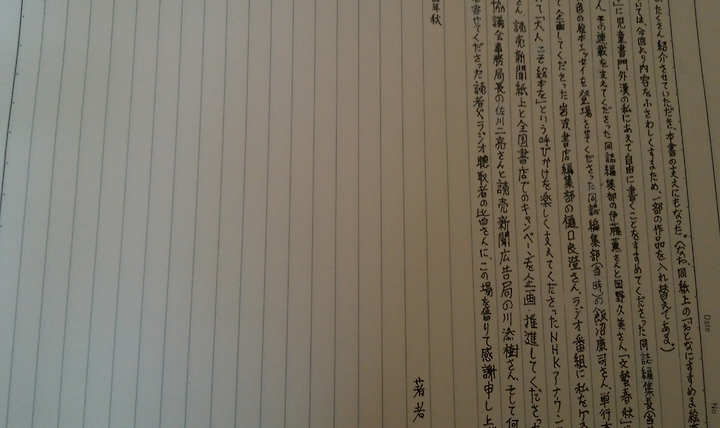 たくさん紹介させていただき、本書の支えにもなった。(なお、同紙上の「おとなにすすめる絵
いては今回より内容をふさわしくするため、一部の作品を入れ替えてある。)
に児童書門外漢の私にあえて自由に書くことをすすめてくださった同誌編集長(当
ん、その連載を支えてくださった同誌編集部の伊藤薫さんと田野久美さん、「文藝春秋」に
色の絵本エッセイを登場させてくださった同誌編集部(当時)の飯沼康司さん、単行本
て企画してくださった岩波書店編集部の樋口良澄さん、ラジオ番組に私をゲス
て「大人こそ絵本を」という呼びかけを楽しく支えてくださったNHKアナウン
さん、読売新聞紙上と全国書店でのキャンペーンを企画・推進してくださっ
協議会事務局長の佐川二亮さんと読売新聞広告局の川添樹さん、そして何
寄せてくださった読者や、ラジオ聴取者の皆さんに、この場を借りて感謝申し上
年秋
著者
Date
No